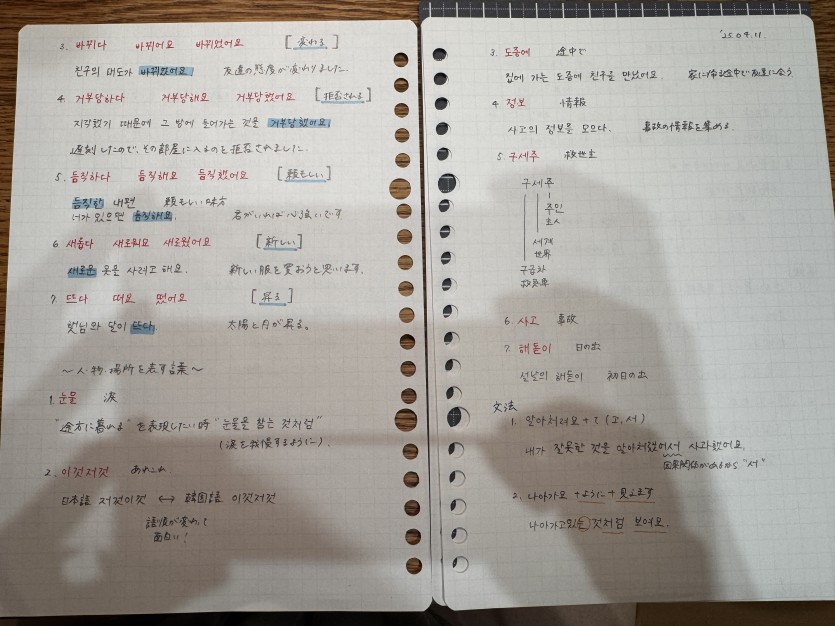 3. 바뀌다 바뀌어요 바뀌었어요 [変わる]
친구의 태도가 바뀌었어요. 友達の態度が変わりました
4. 거부당하다 거부당해요 거부당했어요 [拒否される]
지각했기 때문에 그 방에 들어가는 것을 거부당했어요.
遅刻したので、その部屋に入るのを拒否されました.
5. 듬직하다 듬직해요 듬직했어요 [頼もしい]
듬직한 내편 頼もしい味方
너가 있으면 듬직해요. 君がいれば心強いです
6. 새롭다 새로워요 새로웠어요 [新しい]
새로운 옷을 사려고 해요. 新しい服を買おうと思います.
7. 뜨다 떠요 떴어요 [昇る]
햇님와 달이 뜨다. 太陽と月が昇る。
〜人・物・場所を表す言葉〜
1. 눈물 涙
"途方に暮れる"を表現したい時"눈물을 참는 것처럼"
(涙を我慢するように).
2. 이것저것 あれこれ
日本語 저것이것 ↔ 韓国語 이것저것
語順が変わって
面白い!
'25.04.11.
3. 도중에 途中で
집에 가는 도중에 친구를 만났어요. 家に帰る途中で友達に会う
4. 정보 情報
사고의 정보을 모으다. 事故の情報を集める.
5. 구세주 救世主
구세주
주인
主人
세계
世界
구급차
救急車
6. 사고 事故
7. 해돋이 日の出
설날의 해돋이 初日の出
文法
1. 알아차려요 + て (고, 서)
내가 잘못한 것을 알아차렸어서 사과했어요.
因果関係があるから "서"
2. 나아가요 + ように + 見えます
나아가고있는 것처럼 보여요.